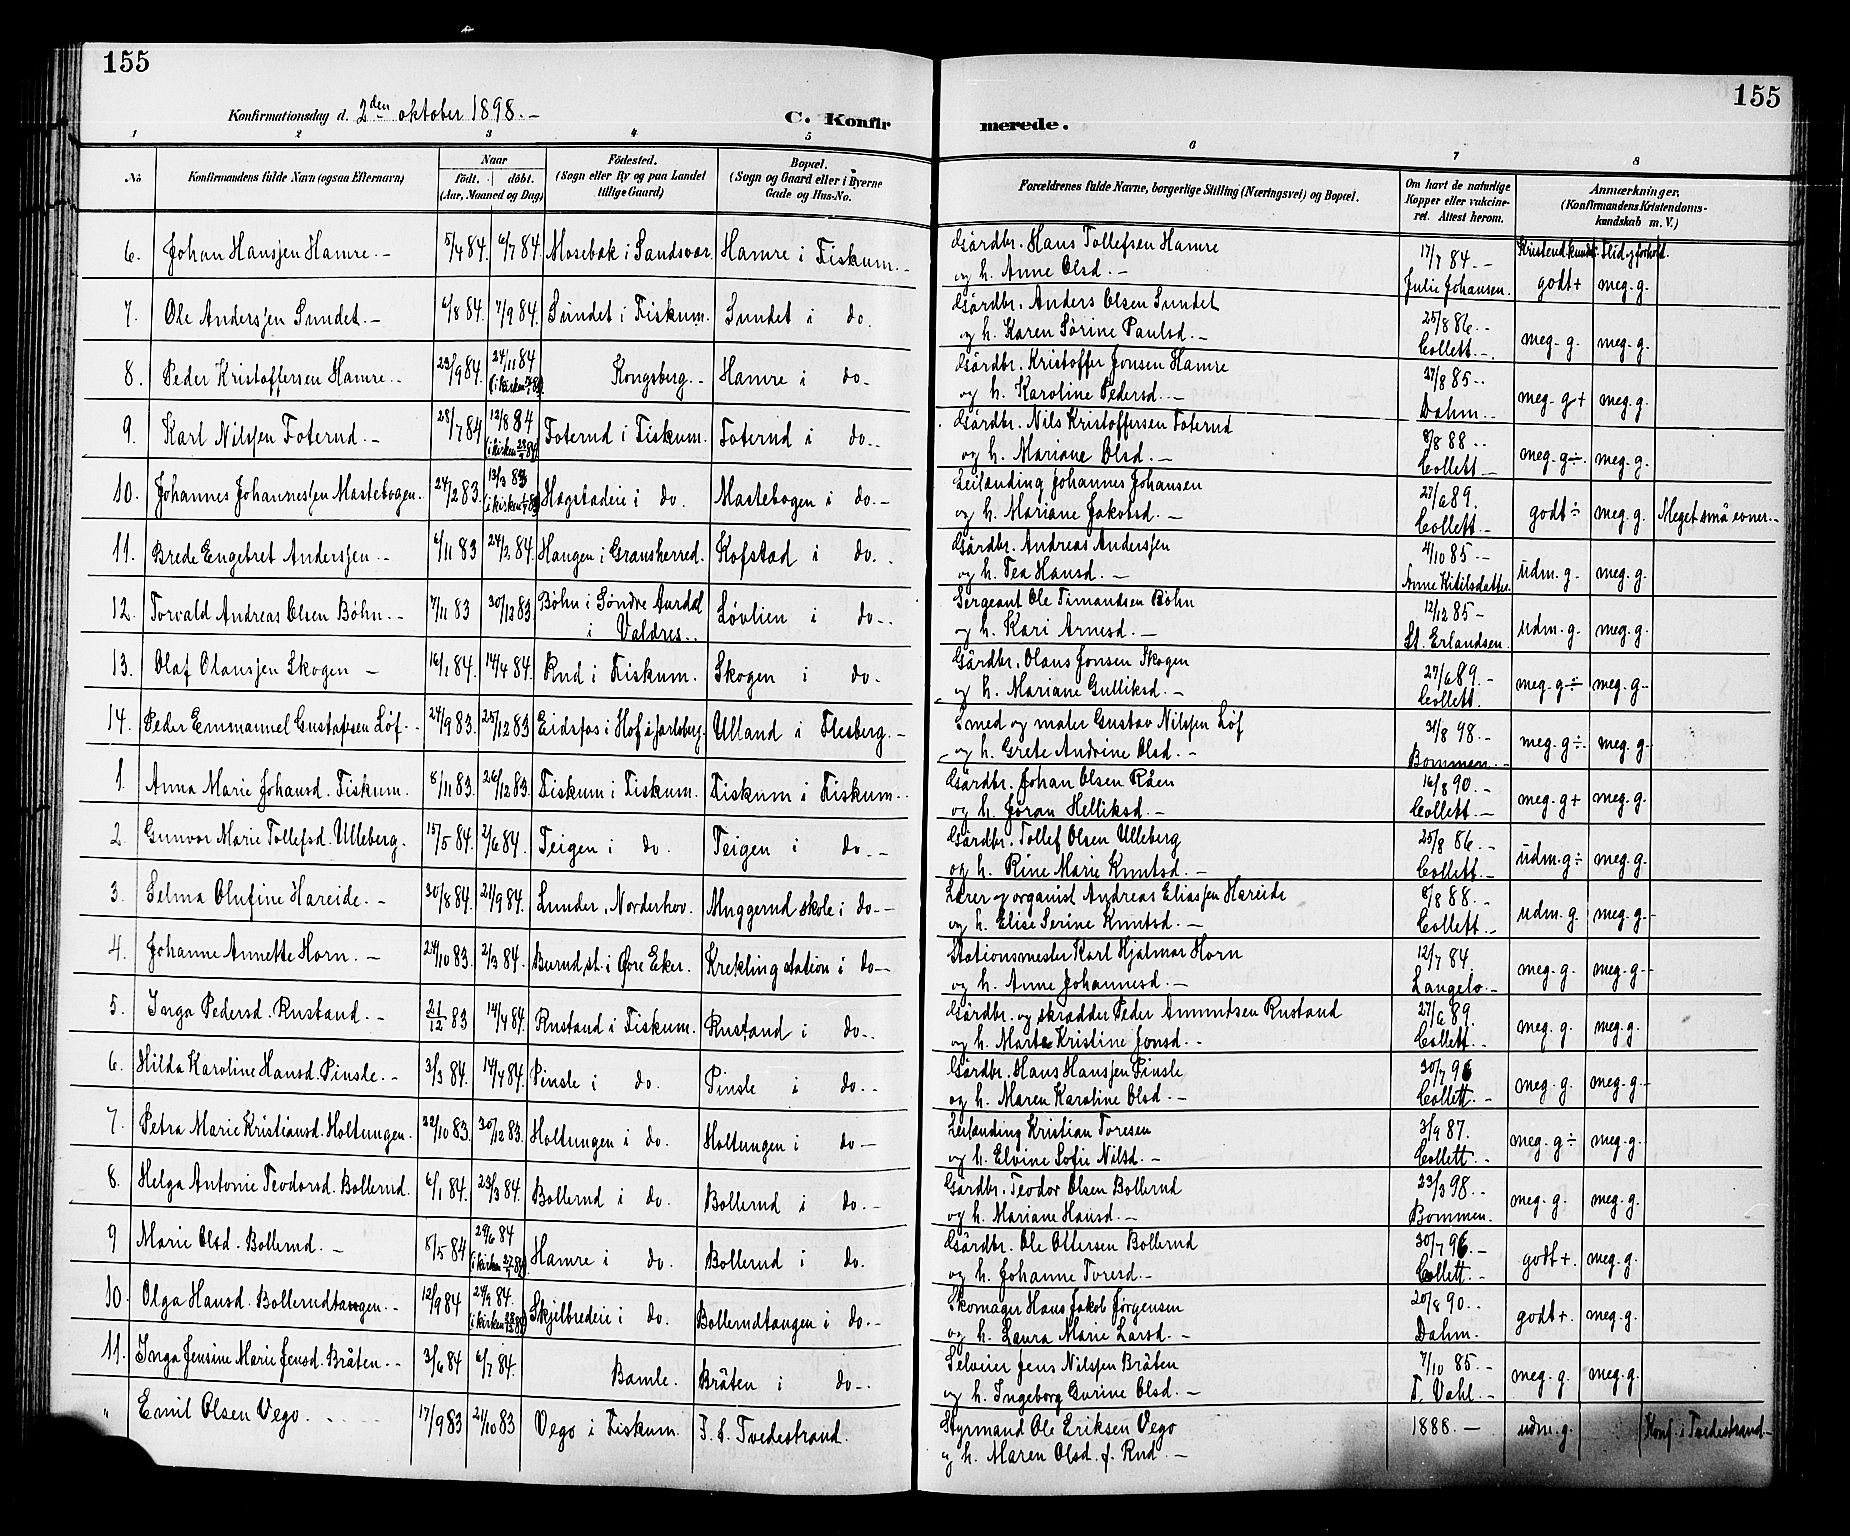 155
155
Konfirmationsdag d. 2den oktober 1898. –
C. Konfir merede.
1 2 3 4 5 6 7 8
No
Konfirmandens fulde Navn (ogsaa Efternavn)
Naar
födt. döbt.
(Aar, Maaned og Dag)
Födested.
(Sogn eller By og paa Landet tillige Gaard)
Bopæl.
(Sogn og Gaard eller i Byerne Gade og Hus-No.
Forældrenes fulde Navne, borgerlige Stilling (Næringsvei) og Bopæl.
Om havt de naturlige Kopper eller vakcineret. Attest herom.
Anmærkninger.
(Konfirmandens Kristendomskundskab m. V.)
Kristend.kundsk. Flid og forhold.
6. Johan Hanssen Hamre. – 5/4 84. 6/7 84. Mosebæk i Sandsvær. Hamre i Fiskum. – Gårdbr. Hans Tollefsen Hamre 17/7 84. – godt + meg. g.
og h. Anne Olsd. – Julie Johansen.
7. Ole Anderssen Sundet. – 6/8 84. 7/9 84. Sundet i Fiskum. Sundet i do. Gårdbr. Anders Olsen Sundet 25/8 86. – meg. g. meg. g.
og h. Karen Sørine Paulsd. – Collett. –
8. Peder Kristoffersen Hamre. – 23/9 84. 24/11 84 Kongsberg. – Hamre i do. Gårdbr. Kristoffer Jonsen Hamre 27/8 85. – meg. g + meg. g.
og h. Karoline Pedersd. – Dahm. –
9. Karl Nilssen Foterud. – 28/7 84. 12/8 84 Foterud i Fiskum. Foterud i do. – Gårdbr. Nils Kristoffersen Foterud 8/8 88. – meg. g ÷. meg. g.
og h. Mariane Olsd. – Collett –
10. Johannes Johannessen Mastebogen. 24/2 83. 13/3 83 Høgstadeie i do. Mastebogen i do. – Leilænding Johannes Johansen 27/6 89. godt ÷ meg. g. Meget små evner. –
og h. Mariane Jakobsd. – Collett –
11. Brede Engebret Anderssen. – 6/11 83 24/2 84. Haugen i Gransherred. Kofstad i do. Gårdbr. Andreas Anderssen 4/10 85. – udm. g. meg. g.
og h. Tea Hansd. – Anne Kittilsdatter.
12. Torvald Andreas Olsen Bøhn. – 7/11 83 30/12 83. Bøhn i Søndre Aurdal i Valdres. Løvlien i do. – Sergeant Ole Timandsen Bøhn 12/12 85 – udm. g. meg. g.
og h. Kari Arnesd. – St. Erlandsen.
13. Olaf Olanssen Skogen – 16/1 84. 14/4 84. Rud i Fiskum. Skogen i do. Gårdbr. Olaus Jonsen Skogen 27/6 89. – meg. g ÷ meg. g.
og h. Mariane Gulliksd. – Collett.
14. Peder Emmanuel Gustafsen Løf. – 24/9 83. 25/12 83 Eidsfos i Hof i Jarlsberg. Ulland i Flesberg. – Smed og maler Gustav Nilssen Løf 31/8 98. – meg. g ÷. meg. g.
og h. Grete Andrine Olsd. – Bommen. –
1. Anna Marie Johansd. Fiskum. 8/11 83. 26/12 83. Fiskum i Fiskum. Fiskum i Fiskum. – Gårdbr. Johan Olsen Råen 16/8 90. – meg. g + meg. g.
og h. Jøran Helliksd. – Collett. –
2. Gunvor Marie Tollefsd. Ulleberg. 15/5 84. 2/6 84. Teigen i do. Teigen i do. – Gårdbr. Tollef Olsen Ulleberg 25/8 86. – udm. g ÷ meg. g.
og h. Rine Marie Knutsd. – Collett. –
3. Selma Olufine Hareide. – 30/8 84. 21/9 84. Lunder, Norderhov. Muggerud skole i do. – Lærer og organist Andreas Eliassen Hareide 8/8 88. – udm. g. meg. g.
og h. Elise Serine Knutsd. – Collett. –
4. Johanne Annette Horn. – 24/10 83. 2/3 84. Burud st. i Øvre Eker. Krekling station i do. – Stationsmester Karl Hjalmar Horn 12/7 84. meg. g. meg. g. –
og h. Anne Johannesd. – Langelo. –
5. Inga Pedersd. Rustand. – 21/12 83 14/4 84. Rustand i Fiskum. Rustand i do. – Gårdbr. og skrædder Peder Amundsen Rustand 27/6 89. meg. g. meg. g.
og h. Marte Kristine Jonsd. – Collett. –
6. Hilda Karoline Hansd. Pinsle. – 3/3 84. 14/4 84. Pinsle i do. Pinsle i do. – Gårdbr. Hans Hanssen Pinsle 30/7 96 meg. g. meg. g. –
og h. Maren Karoline Olsd. – Collett. –
7. Petra Marie Kristiansd. Holtungen. 22/10 83. 30/12 83. Holtungen i do. Holtungen i do – Leilænding Kristian Toresen 3/9 87. meg. g ÷ meg. g.
og h. Elvine Sofie Nilsd. – Collett. –
8. Helga Antonie Teodorsd. Bollerud. 6/1 84. 23/3 84. Bollerud i do. Bollerud i do. – Gårdbr. Teodor Olsen Bollerud 23/3 98. – meg. g. meg. g.
og h. Mariane Hansd. – Bommen.
9 Marie Olsd. Bollerud. – 8/5 84 29/6 84 Hamre i do. Bollerud i do. Gårdbr. Ole Ottersen Bollerud 30/7 96. – godt +. meg. g.
og h. Johanne Toresd. – Collett. –
10. Olga Hansd. Bollerudtangen. – 12/9 84 Skjelbredeie i do. Bollerudtangen i do. – Skomager Hans Jakob Jørgensen 20/8 90. – godt +. meg. g.
og h. Laura Marie Larsd. – Dahm. –
11. Inga Jensine Marie Jensd. Bråten. – 3/6 84 6/7 84. Bamle. Bråten i do. – Selveier Jens Nilssen Bråten 7/10 85. – meg. g. meg. g.
og h. Ingeborg Gurine Olsd. – T. Vahl. –
" Emil Olsen Vego. 17/9 83 21/10 83 Vego i Fiskum T. S. Tvedestrand. Styrmand Ole Eriksen Vego 1888. – udm. g. Konf. i Tvedestrand –
og h. Maren Olsd. f. Rud. –